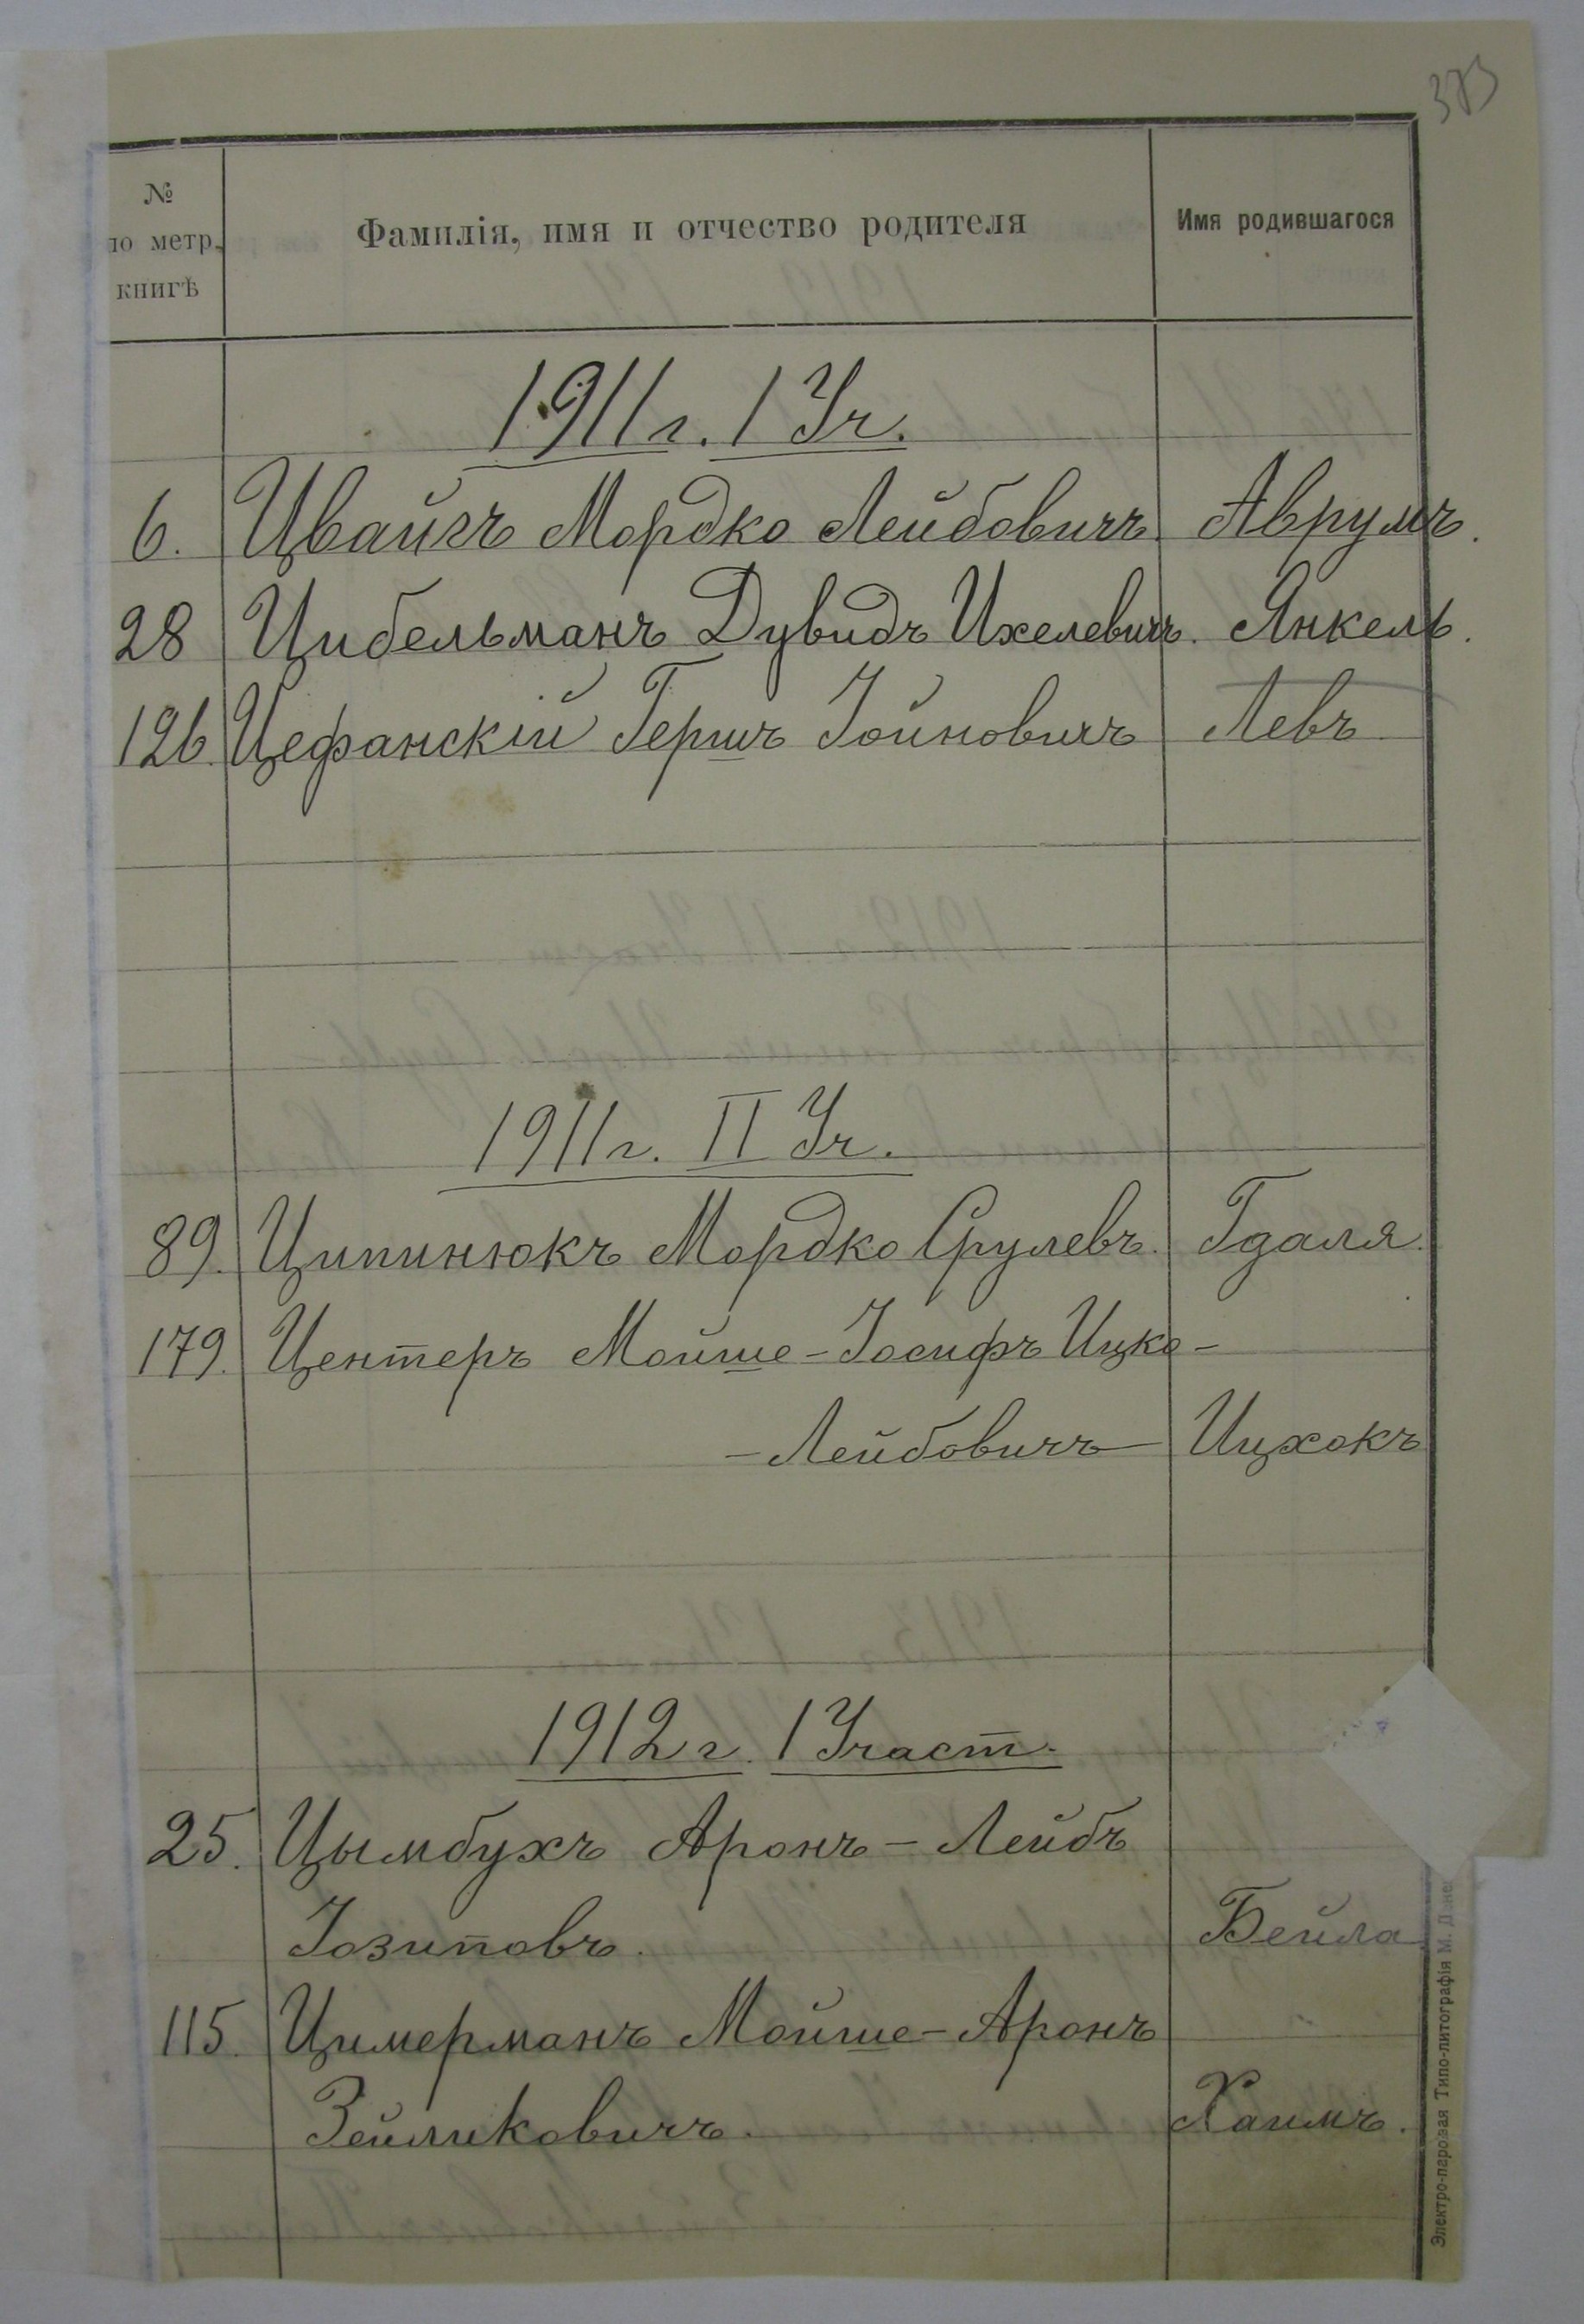 373
№
по метр.
книгѣ
Фамилія, имя и отчество родителя
Имя родившагося
1911 г. I Уч.
6. Цвайгъ Мордко Лейбовичъ Аврумъ.
28 Цибельманъ Дувидъ Ихелевичъ. Янкель.
126. Цефанскій Гершъ Іойновичъ Левъ
1911 г. II Уч.
89. Ципинюкъ Мордко Срулевъ. Гдаля.
179. Центеръ Мойше-Іосифъ Ицко-
-Лейбовичъ Ицхокъ
1912 г. I Участ.
25. Цымбухъ Аронъ-Лейбъ
Іозиповъ. Бейла
115. Цимерманъ Мойше-Аронъ
Зейликовичъ. Хаимъ.
Электро-паровая Типо-литографія М.